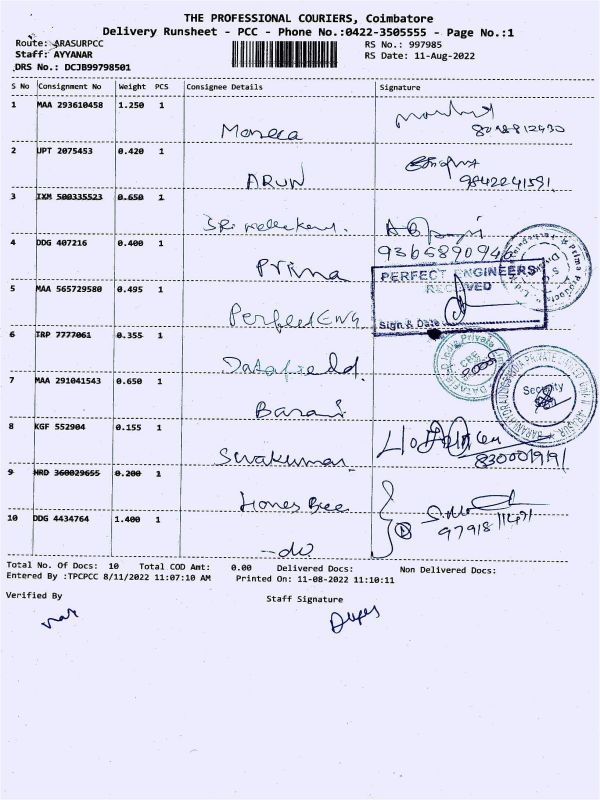 THE PROFESSIONAL COURIERS, Coimbatore
Delivery Runsheet - PCC - Phone No.:0422-3505555 - Page No.:1
Route: ARASURPCC RS No.: 997985
Staff: AYYANAR RS Date: 11-Aug-2022
DRS No.: DCJB99798501
S No Consignment No Weight PCS Consignee Details Signature
1 MAA 293610458 1.250 1
Moneca
2 UPT 2075453 0.420 1
ARUN 9842241591
3 IXM 500335523 0.650 1
4 DDG 407216 0.400 1
Prima
5 MAA 565729580 0.495 1
PERFECT ENGINEERS
RECEIVED
Sign & Date
Perfect ENG
6 TRP 7777061 0.355 1
Datafield
7 MAA 291041543 0.650 1
Security
Barani
8 KGF 552904 0.155 1
Sivakumar 8300019191
9 HRD 360029655 0.200 1
Hones Bee
10 DDG 4434764 1.400 1
-do
Total No. Of Docs: 10 Total COD Amt: 0.00 Delivered Docs: Non Delivered Docs:
Entered By :TPCPCC 8/11/2022 11:07:10 AM Printed On: 11-08-2022 11:10:11
Verified By Staff Signature